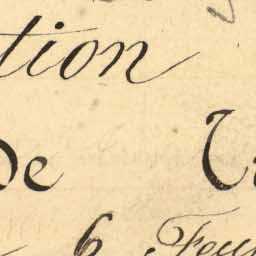 tion
de
6 Feu